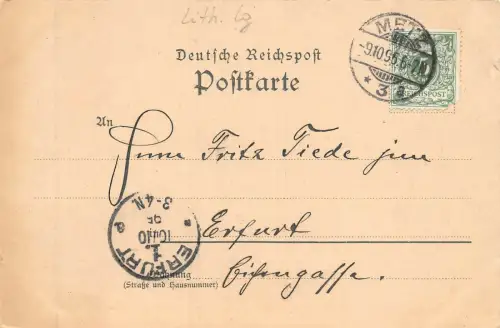 Lith. Lg
METZ
-9.10.95.6-7N.
* 3 a
REICHSPOST
Deutsche Reichspost
Postkarte
An
Herrn Fritz Tiede jun
Erfurt
ERFURT
1.
10.10
95
3-4N.
* a
Eisengasse.
Wohnung
(Straße und Hausnummer)